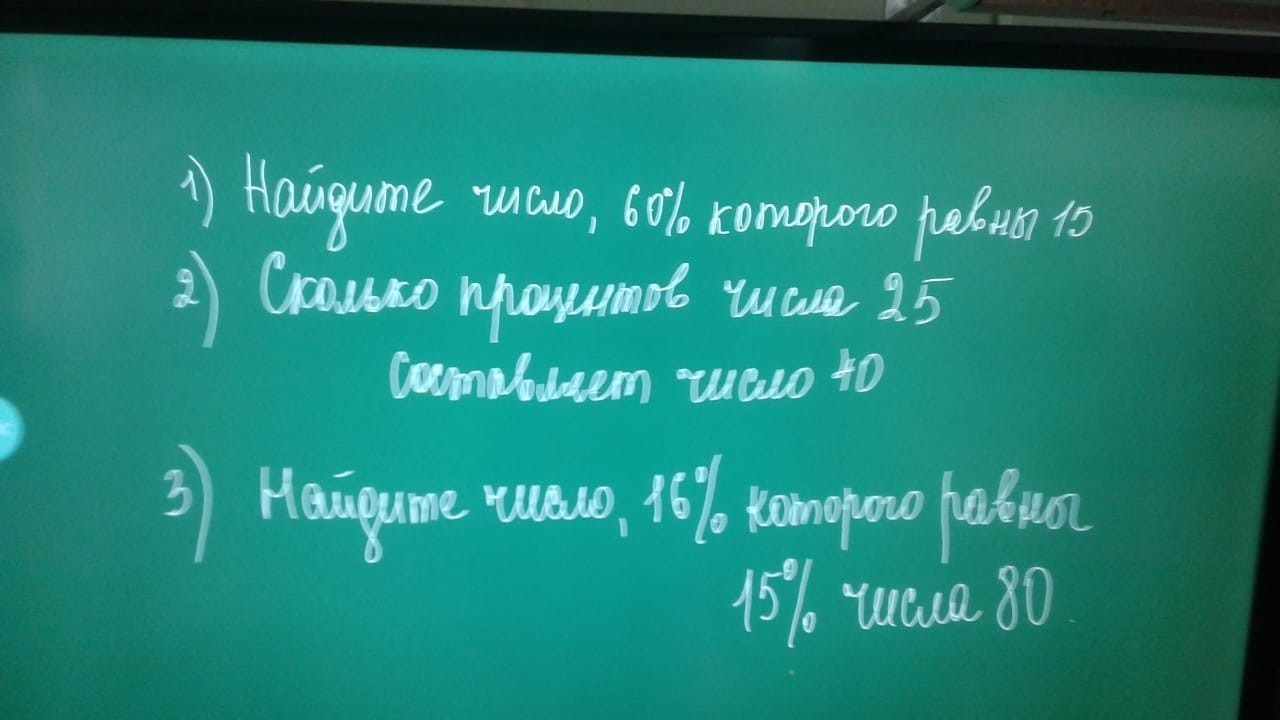 1) Найдите число, 60% которого равны 15
2) Сколько процентов числа 25
составляет число 40
3) Найдите число, 16% которого равны
15% числа 80